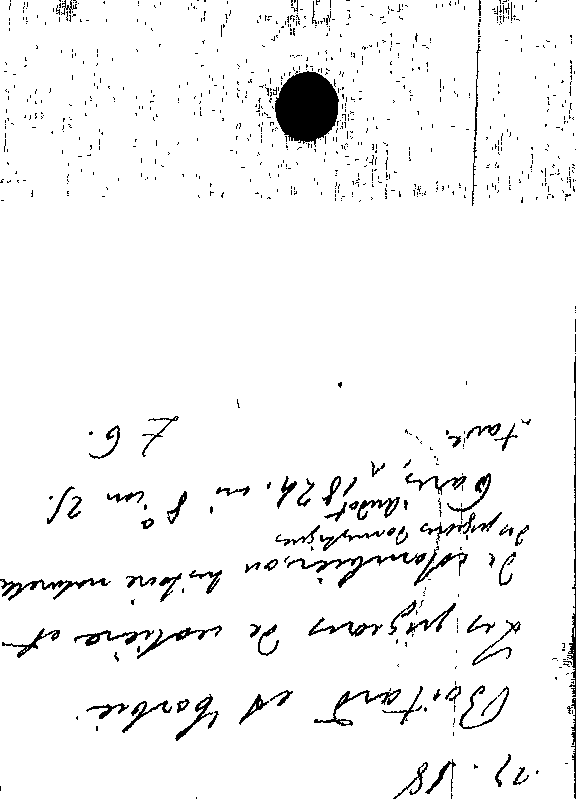 Boitard et Corbié.
Les pigeons de volière et
de colombier, ou histoire naturelle
des pigeons domestiques
Paris, Audot 1824. in 8°